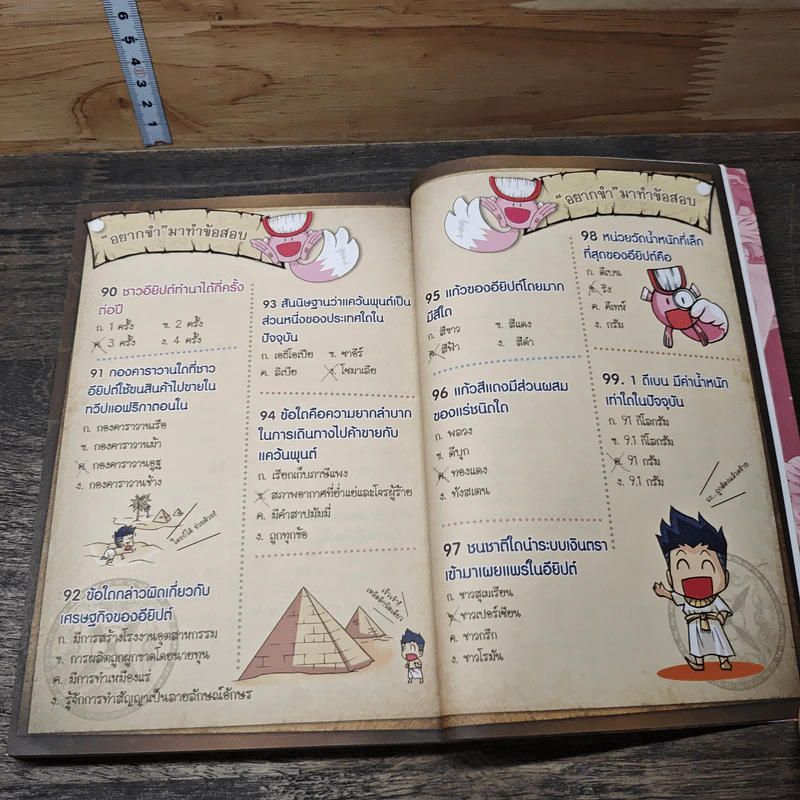 6 5 4 3 2 1
"อยากขำ"มาทำข้อสอบ
90 ชาวอียิปต์ทำนาได้กี่ครั้ง
ต่อปี
ก. 1 ครั้ง ข. 2 ครั้ง
ค. 3 ครั้ง ง. 4 ครั้ง
91 กองคาราวานใดที่ชาว
อียิปต์ใช้ขนสินค้าไปขายใน
ทวีปแอฟริกาตอนใน
ก. กองคาราวานเรือ
ข. กองคาราวานม้า
ค. กองคาราวานอูฐ
ง. กองคาราวานช้าง
92 ข้อใดกล่าวผิดเกี่ยวกับ
เศรษฐกิจของอียิปต์
ก. มีการสร้างโรงงานอุตสาหกรรม
ข. การผลิตถูกผูกขาดโดยนายทุน
ค. มีการทำเหมืองแร่
ง. รู้จักการทำสัญญาเป็นลายลักษณ์อักษร
93 สันนิษฐานว่าแคว้นพุนต์เป็น
ส่วนหนึ่งของประเทศใดใน
ปัจจุบัน
ก. เอธิโอเปีย ข. ซาอีร์
ค. ลิเบีย ง. โซมาเลีย
94 ข้อใดคือความยากลำบาก
ในการเดินทางไปค้าขายกับ
แคว้นพุนต์
ก. เรียกเก็บภาษีแพง
ข. สภาพอากาศที่ย่ำแย่และโจรผู้ร้าย
ค. มีคำสาปมัมมี่
ง. ถูกทุกข้อ
"อยากขำ"มาทำข้อสอบ
95 แก้วของอียิปต์โดยมาก
มีสีใด
ก. สีขาว ข. สีแดง
ค. สีฟ้า ง. สีดำ
96 แก้วสีแดงมีส่วนผสม
ของแร่ชนิดใด
ก. พลวง
ข. ดีบุก
ค. ทองแดง
ง. ทังสเตน
97 ชนชาติใดนำระบบเงินตรา
เข้ามาเผยแพร่ในอียิปต์
ก. ชาวสุเมเรียน
ข. ชาวเปอร์เซียน
ค. ชาวกรีก
ง. ชาวโรมัน
98 หน่วยวัดน้ำหนักที่เล็ก
ที่สุดของอียิปต์คือ
ก. ดีเบน
ข. ริง
ค. คีเทห์
ง. กรัม
99. 1 ดีเบน มีค่าน้ำหนัก
เท่าใดในปัจจุบัน
ก. 91 กิโลกรัม
ข. 9.1 กิโลกรัม
ค. 91 กรัม
ง. 9.1 กรัม